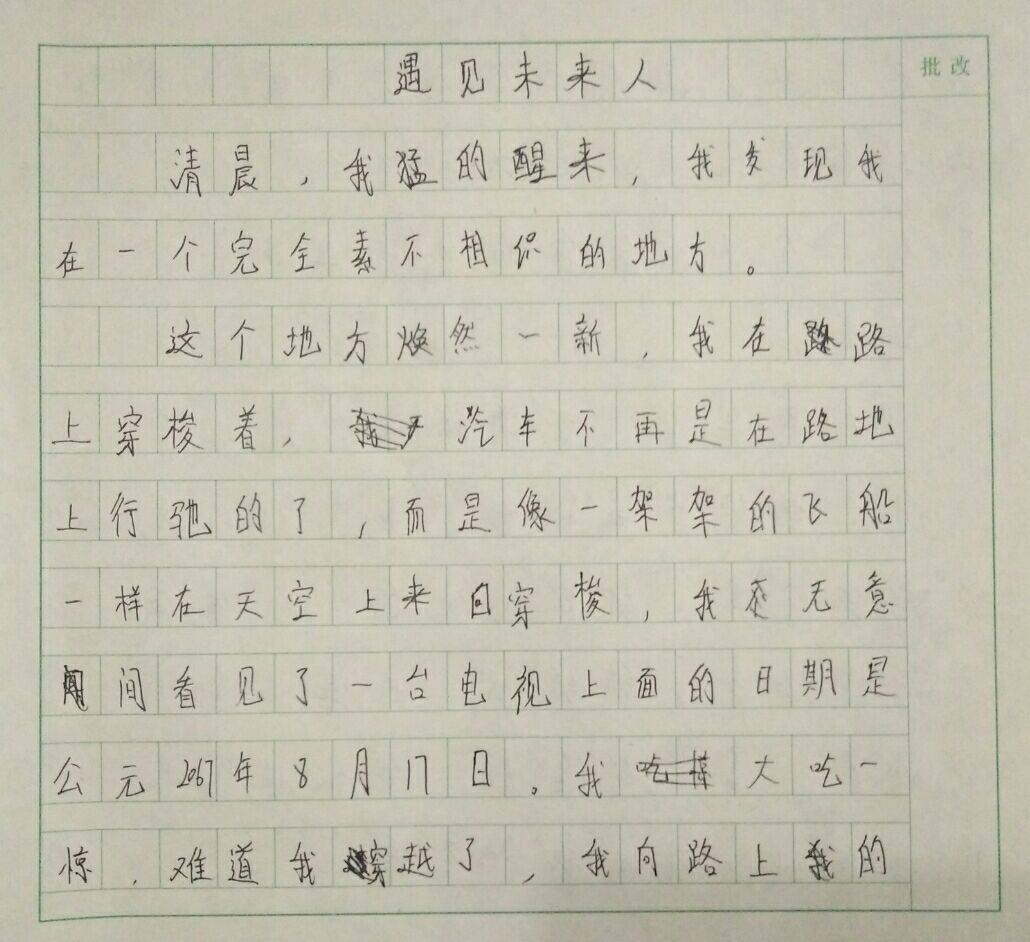 遇见未来人
批改
清晨，我猛的醒来，我发现我
在一个完全素不相似的地方。
这个地方焕然一新，我在路
上穿梭着，汽车不再是在路地
上行驰的了，而是像一架架的飞船
一样在天空上来回穿梭，我无意
间看见了一台电视上面的日期是
公元2067年8月17日。我大吃一
惊，难道我穿越了，我向路上的